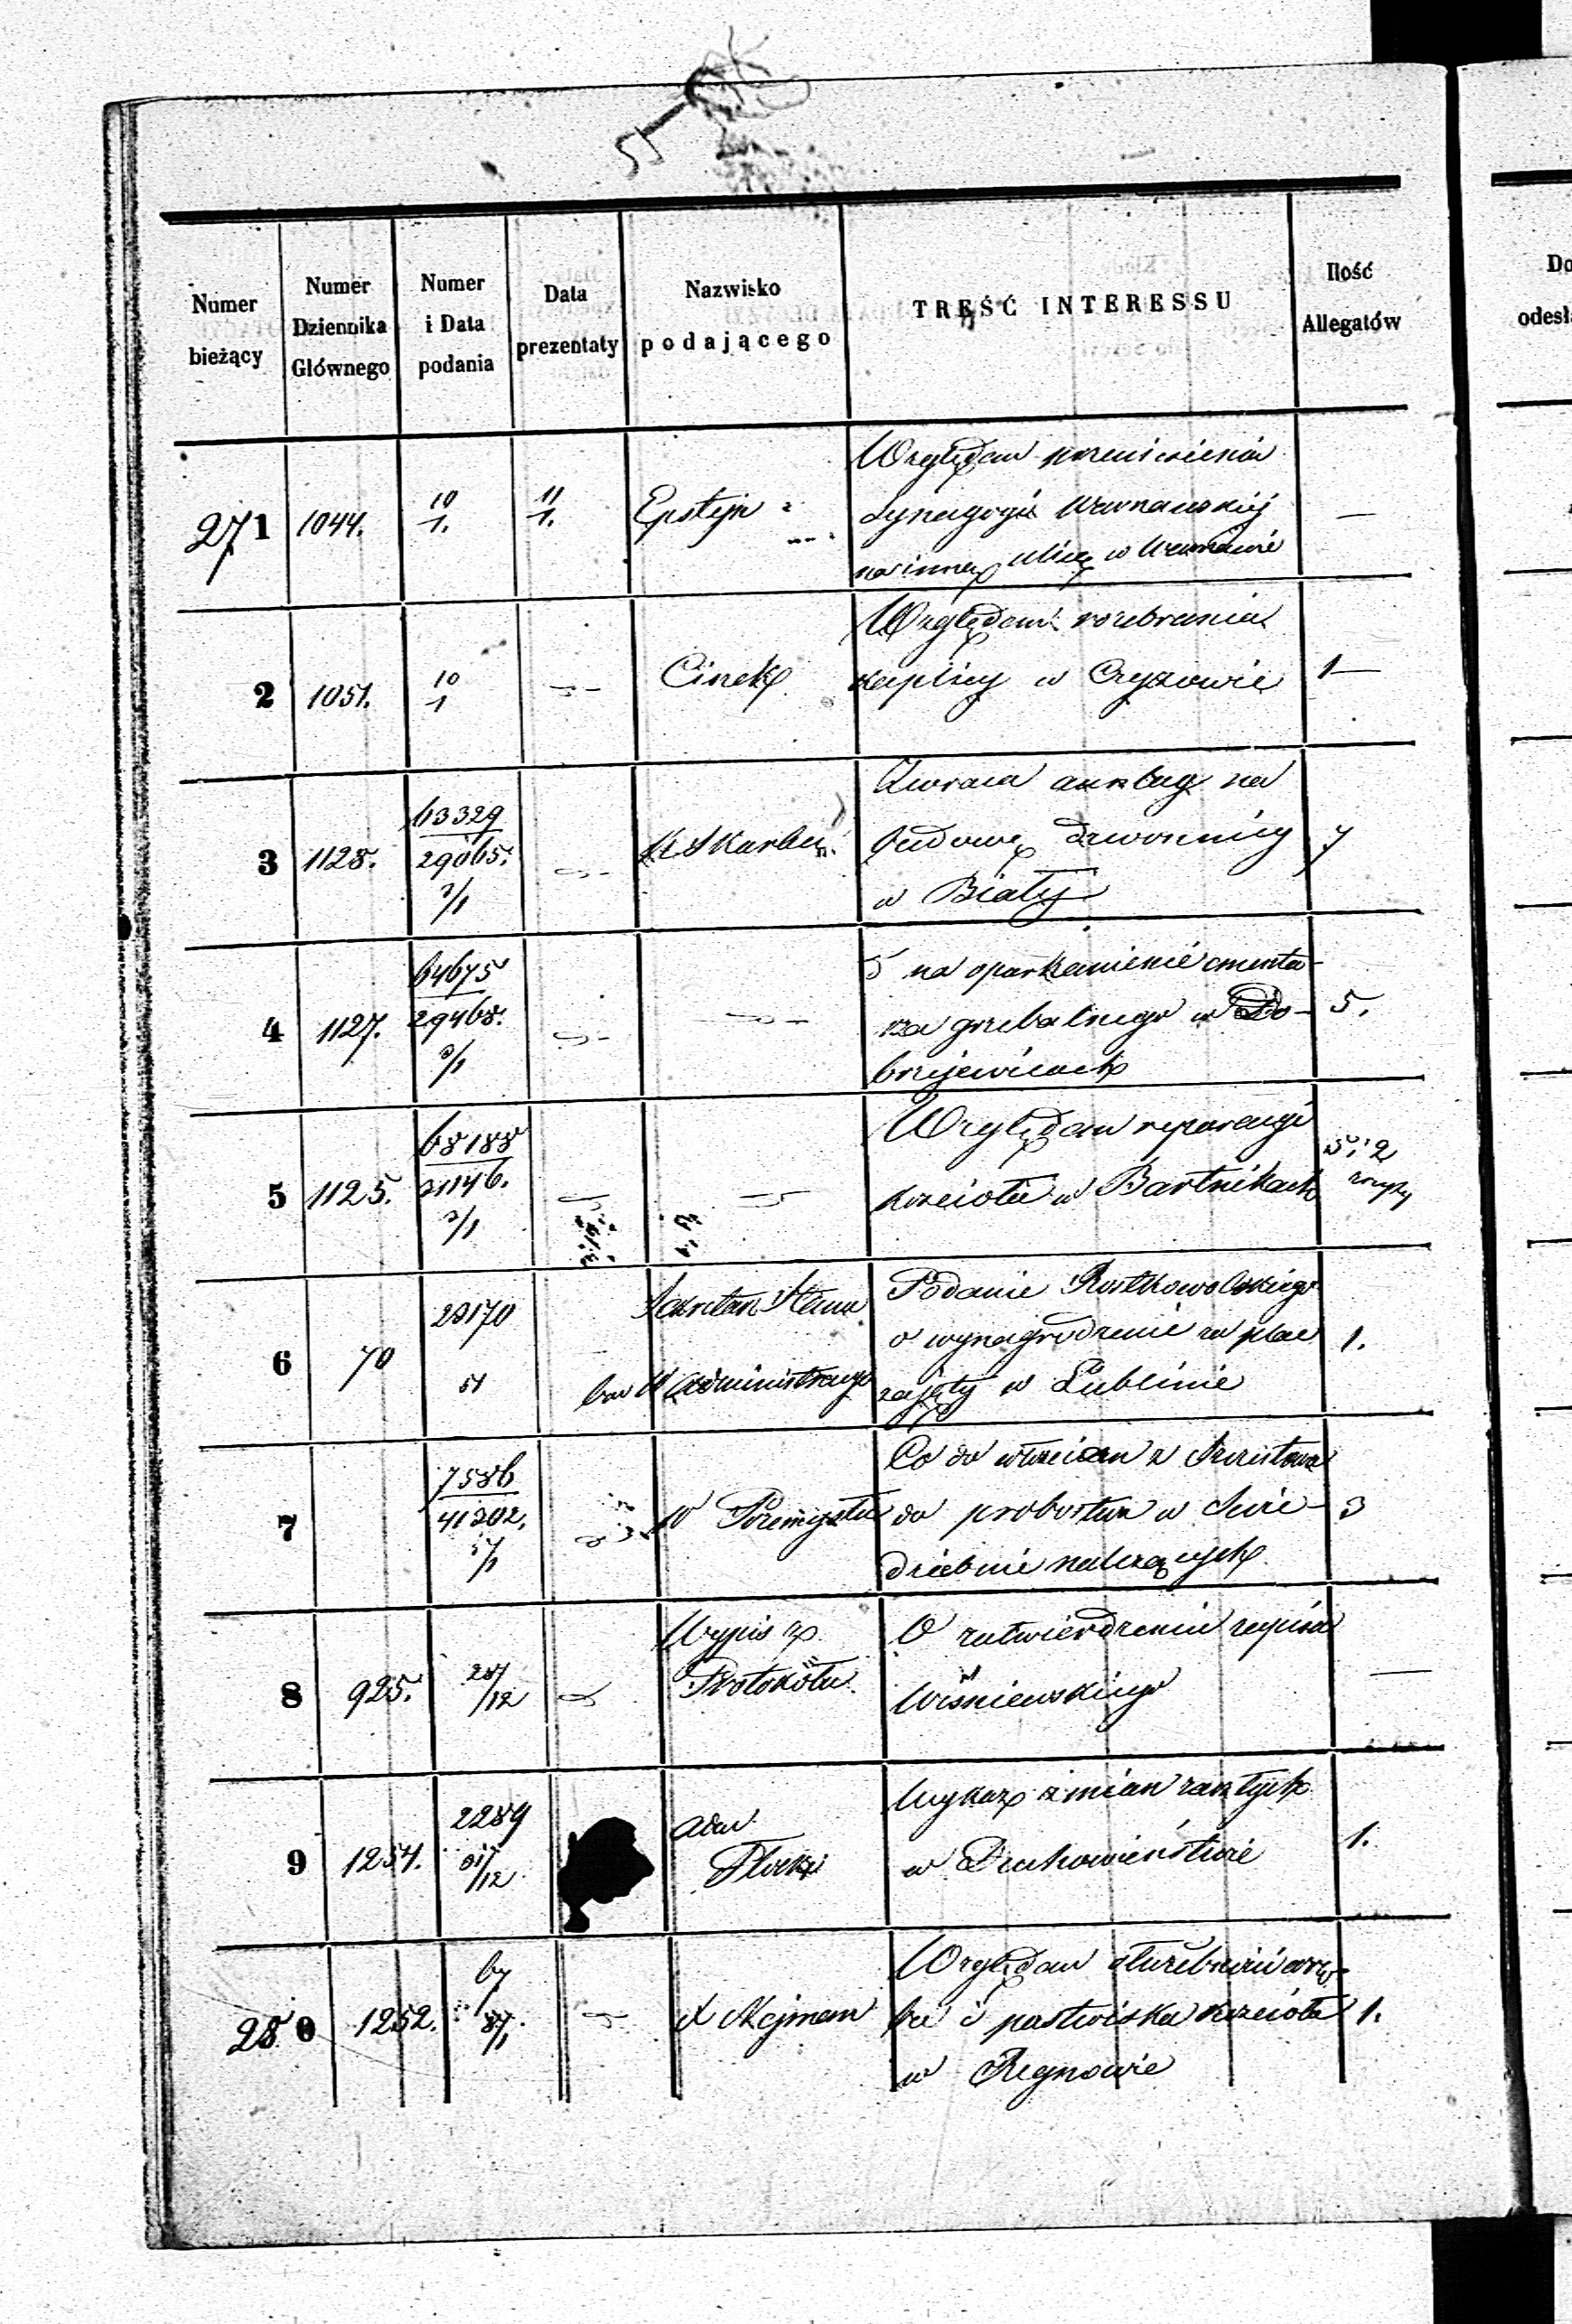 55
Numer bieżący
Numer Dziennika Głównego
Numer i Data podania
Data prezentaty
Nazwisko podającego
TREŚĆ INTERESSU
Ilość Allegatów
271 1044. 10/1. 11/1. Epstejn Względem przeniesienia
Synagogi Warszawskiej
na inną ulicę w Warszawie —
2 1051. 10/1 Cinek Względem rozebrania
kaplicy w Czyżowie 1
3 1128. 63329
29065. 3/1 K Skarbu Zwraca anszlag na
budowę dzwonnicy
w Białej 7
4 1127. 64675
29468. 3/1 na oparkanienie cmenta-
rza grzebalnego w Do-
brzejewicach 5.
5 1125. 68188
31146. 3/1 Względem reparacyi
kościoła w Bartnikach 5. 2
6 70 29170 Sekretarz Stanu
Administracyi Podanie Rostkowolskiego
o wynagrodzenie za plac
zajęty w Lublinie 1.
7 7586
41202. Przemysłu Co do włościan z
do probostwa w Świe-
dziebnie należących 3
8 925. 28/12 Wypis z
Protokółu O zatwierdzenie zapisu
Wiśniewskiego —
9 1254. 2289
31/12 Adm
Płocki Wykaz zmian zaszłych
w Duchowieństwie 1.
280 1252. 67
8/1 X Nejman Względem
i pastwiska kościoła
w Regnowie 1.
Do
odesł